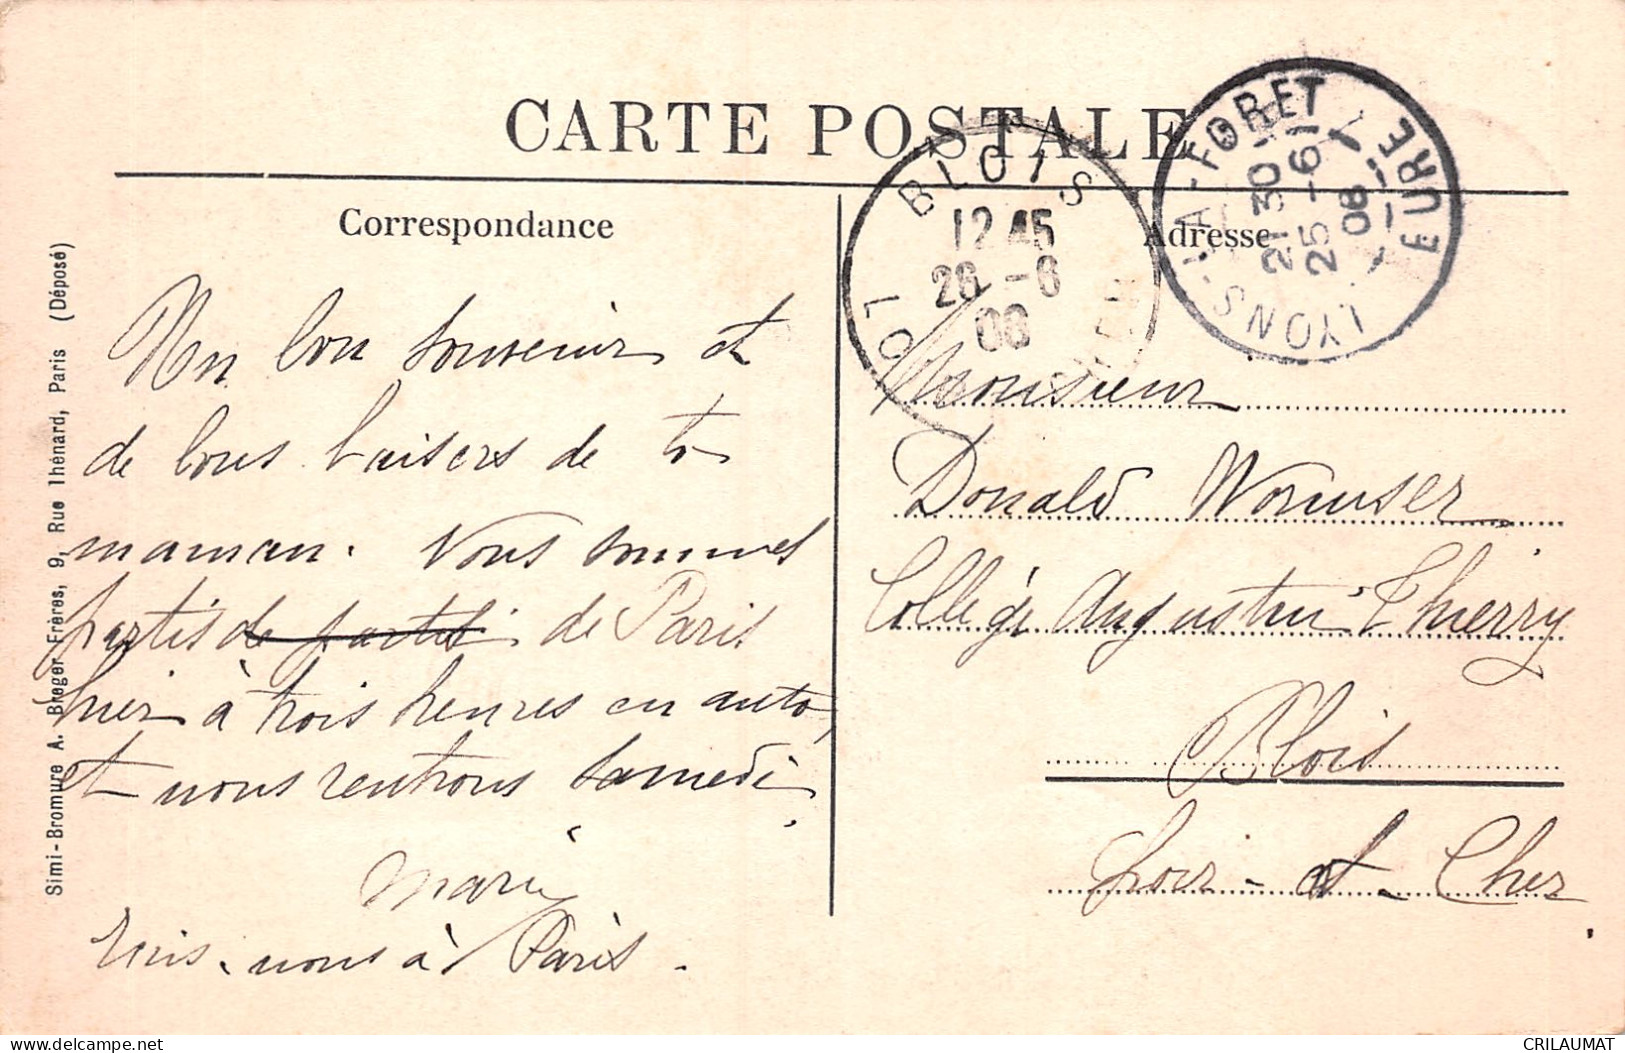 CARTE POSTALE
Correspondance
Adresse
BLOIS
12 45
26 - 6
08
LOI CHER
LYONS-LA-FORET
21 30
25 - 6
08
EURE
Un bon souvenir et
de bons baisers de ta
maman. Nous sommes
partis de partis de Paris
hier à trois heures en auto,
et nous rentrons samedi.
Marie
Ecris-nous à Paris.
Monsieur
Donald Wormser
Collège Augustin Thierry
Blois
Loir-et-Cher
Simi-Bromure A. Breger Frères, 9, Rue Thénard, Paris (Déposé)
delcampe.net
CRILAUMAT